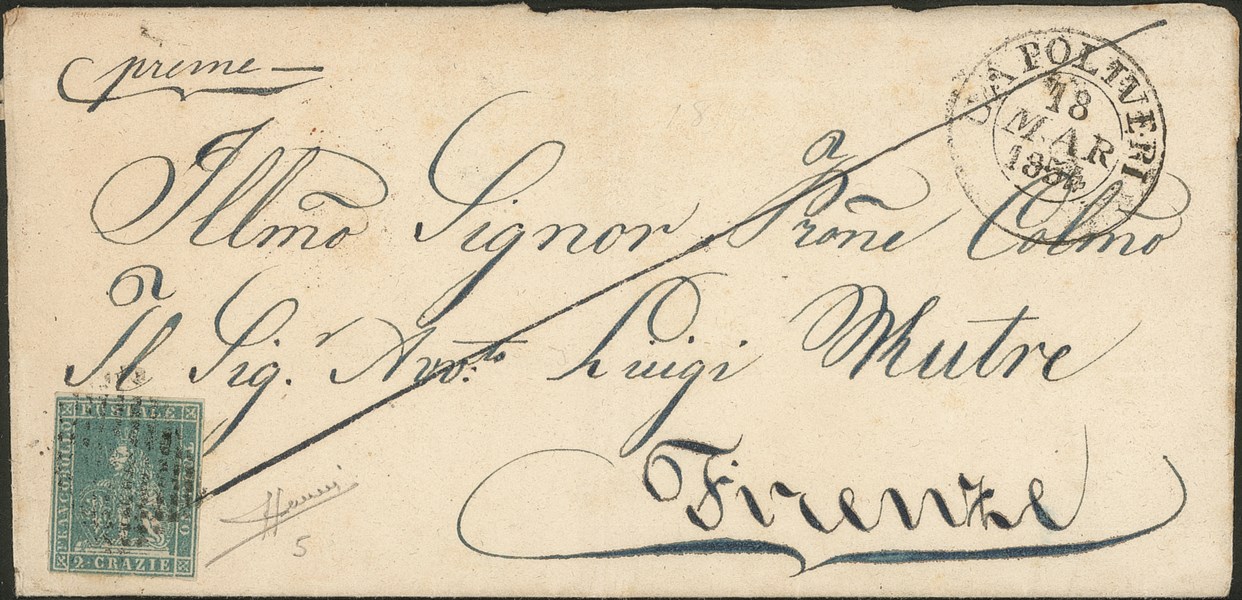 preme
CAPOLIVERI
18
MAR
1854
Illmõ Signor Prõñe Colmõ
Il Sig.r Avv.to Luigi Mutre
Firenze
FRANCOBOLLO
POSTALE
TOSCANO
2 CRAZIE
5